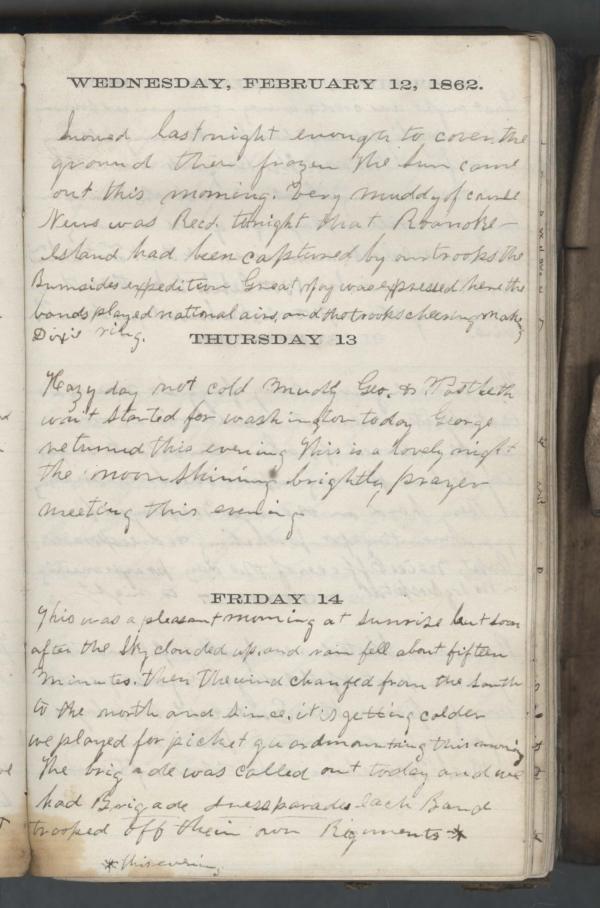 WEDNESDAY, FEBRUARY 12, 1862.
Snowed last night enough to cover the
ground then frozen the Sun came
out this morning. Very muddy of course
News was Recd. tonight that Roanoke
Island had been captured by our troops the
Burnsides expedition Great joy was expressed here the
bands played national airs, and the troops cheering making
Dixie ring.
THURSDAY 13
Hazy day not cold muddy Geo. &
started for washington today George
returned this evening This is a lovely night
the moon Shining brightly, prayer
meeting this evening
FRIDAY 14
This was a pleasant morning at Sunrise but soon
after the Sky clouded up. and rain fell about fifteen
Minutes. then the wind changed from the South
to the north and Since. it is getting colder
we played for picket guardmounting this morning
The brigade was called out today and we
had Brigade dress parade each Band
trooped off their own Regiments *
* this evening